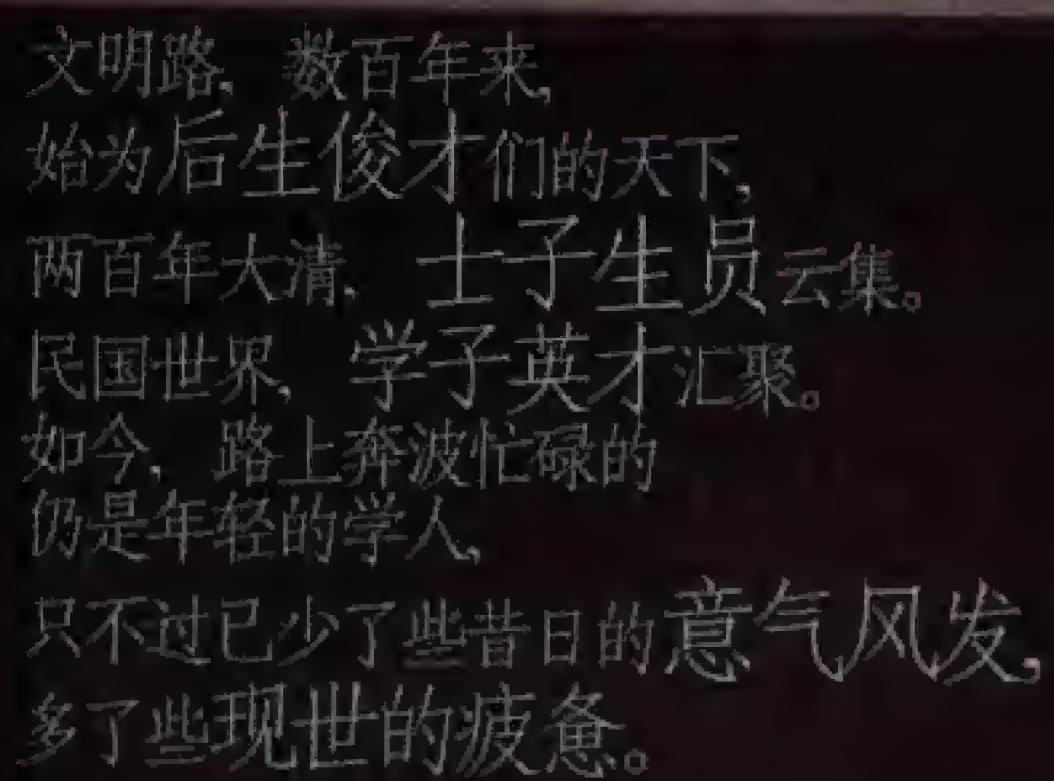 文明路，数百年来，
始为后生俊才们的天下，
两百年大清，士子生员云集。
民国世界，学子英才汇聚。
如今，路上奔波忙碌的
仍是年轻的学人，
只不过已少了些昔日的意气风发，
多了些现世的疲惫。